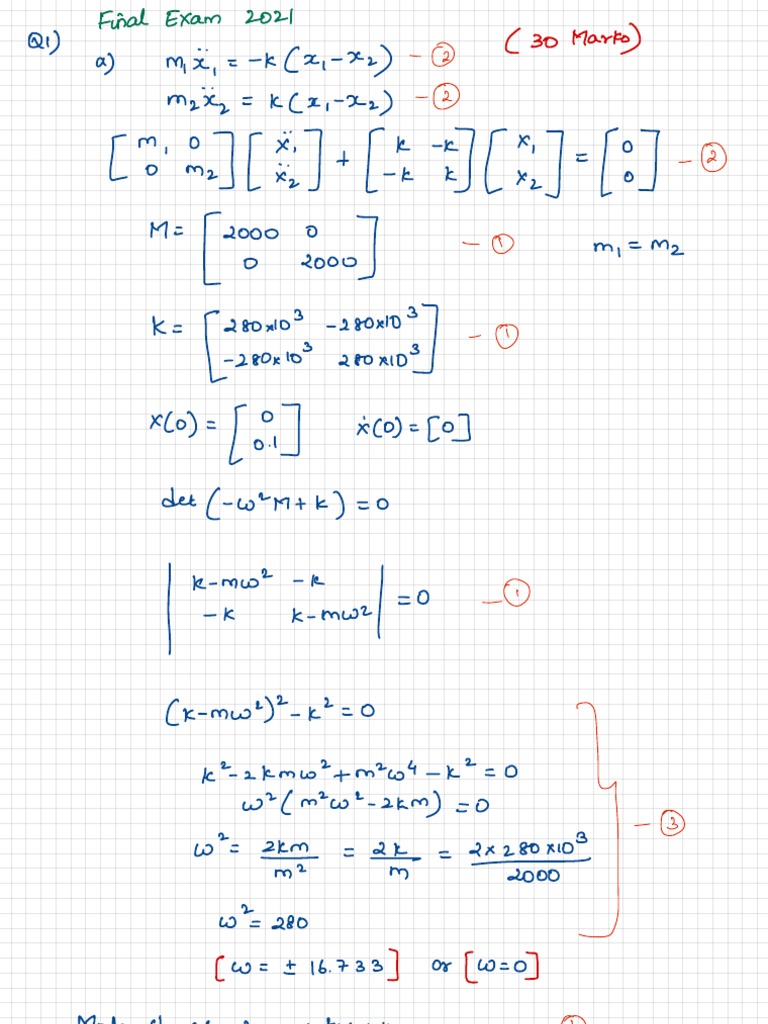 Final Exam 2021
Q1) (30 Marks)
a) m₁ẍ₁ = -k(x₁-x₂) - ②
m₂ẍ₂ = k(x₁-x₂) - ②
[m₁ 0; 0 m₂] [ẍ₁; ẍ₂] + [k -k; -k k] [x₁; x₂] = [0; 0] - ②
M = [2000 0; 0 2000] - ① m₁ = m₂
K = [280×10³ -280×10³; -280×10³ 280×10³] - ①
x(0) = [0; 0.1] ẋ(0) = [0]
det (-ω²M + k) = 0
|k-mω² -k; -k k-mω²| = 0 - ①
(k-mω²)² - k² = 0
k² - 2kmω² + m²ω⁴ - k² = 0
ω²(m²ω² - 2km) = 0
ω² = 2km/m² = 2k/m = 2×280×10³/2000 - ③
ω² = 280
[ω = ± 16.733] or [ω=0]